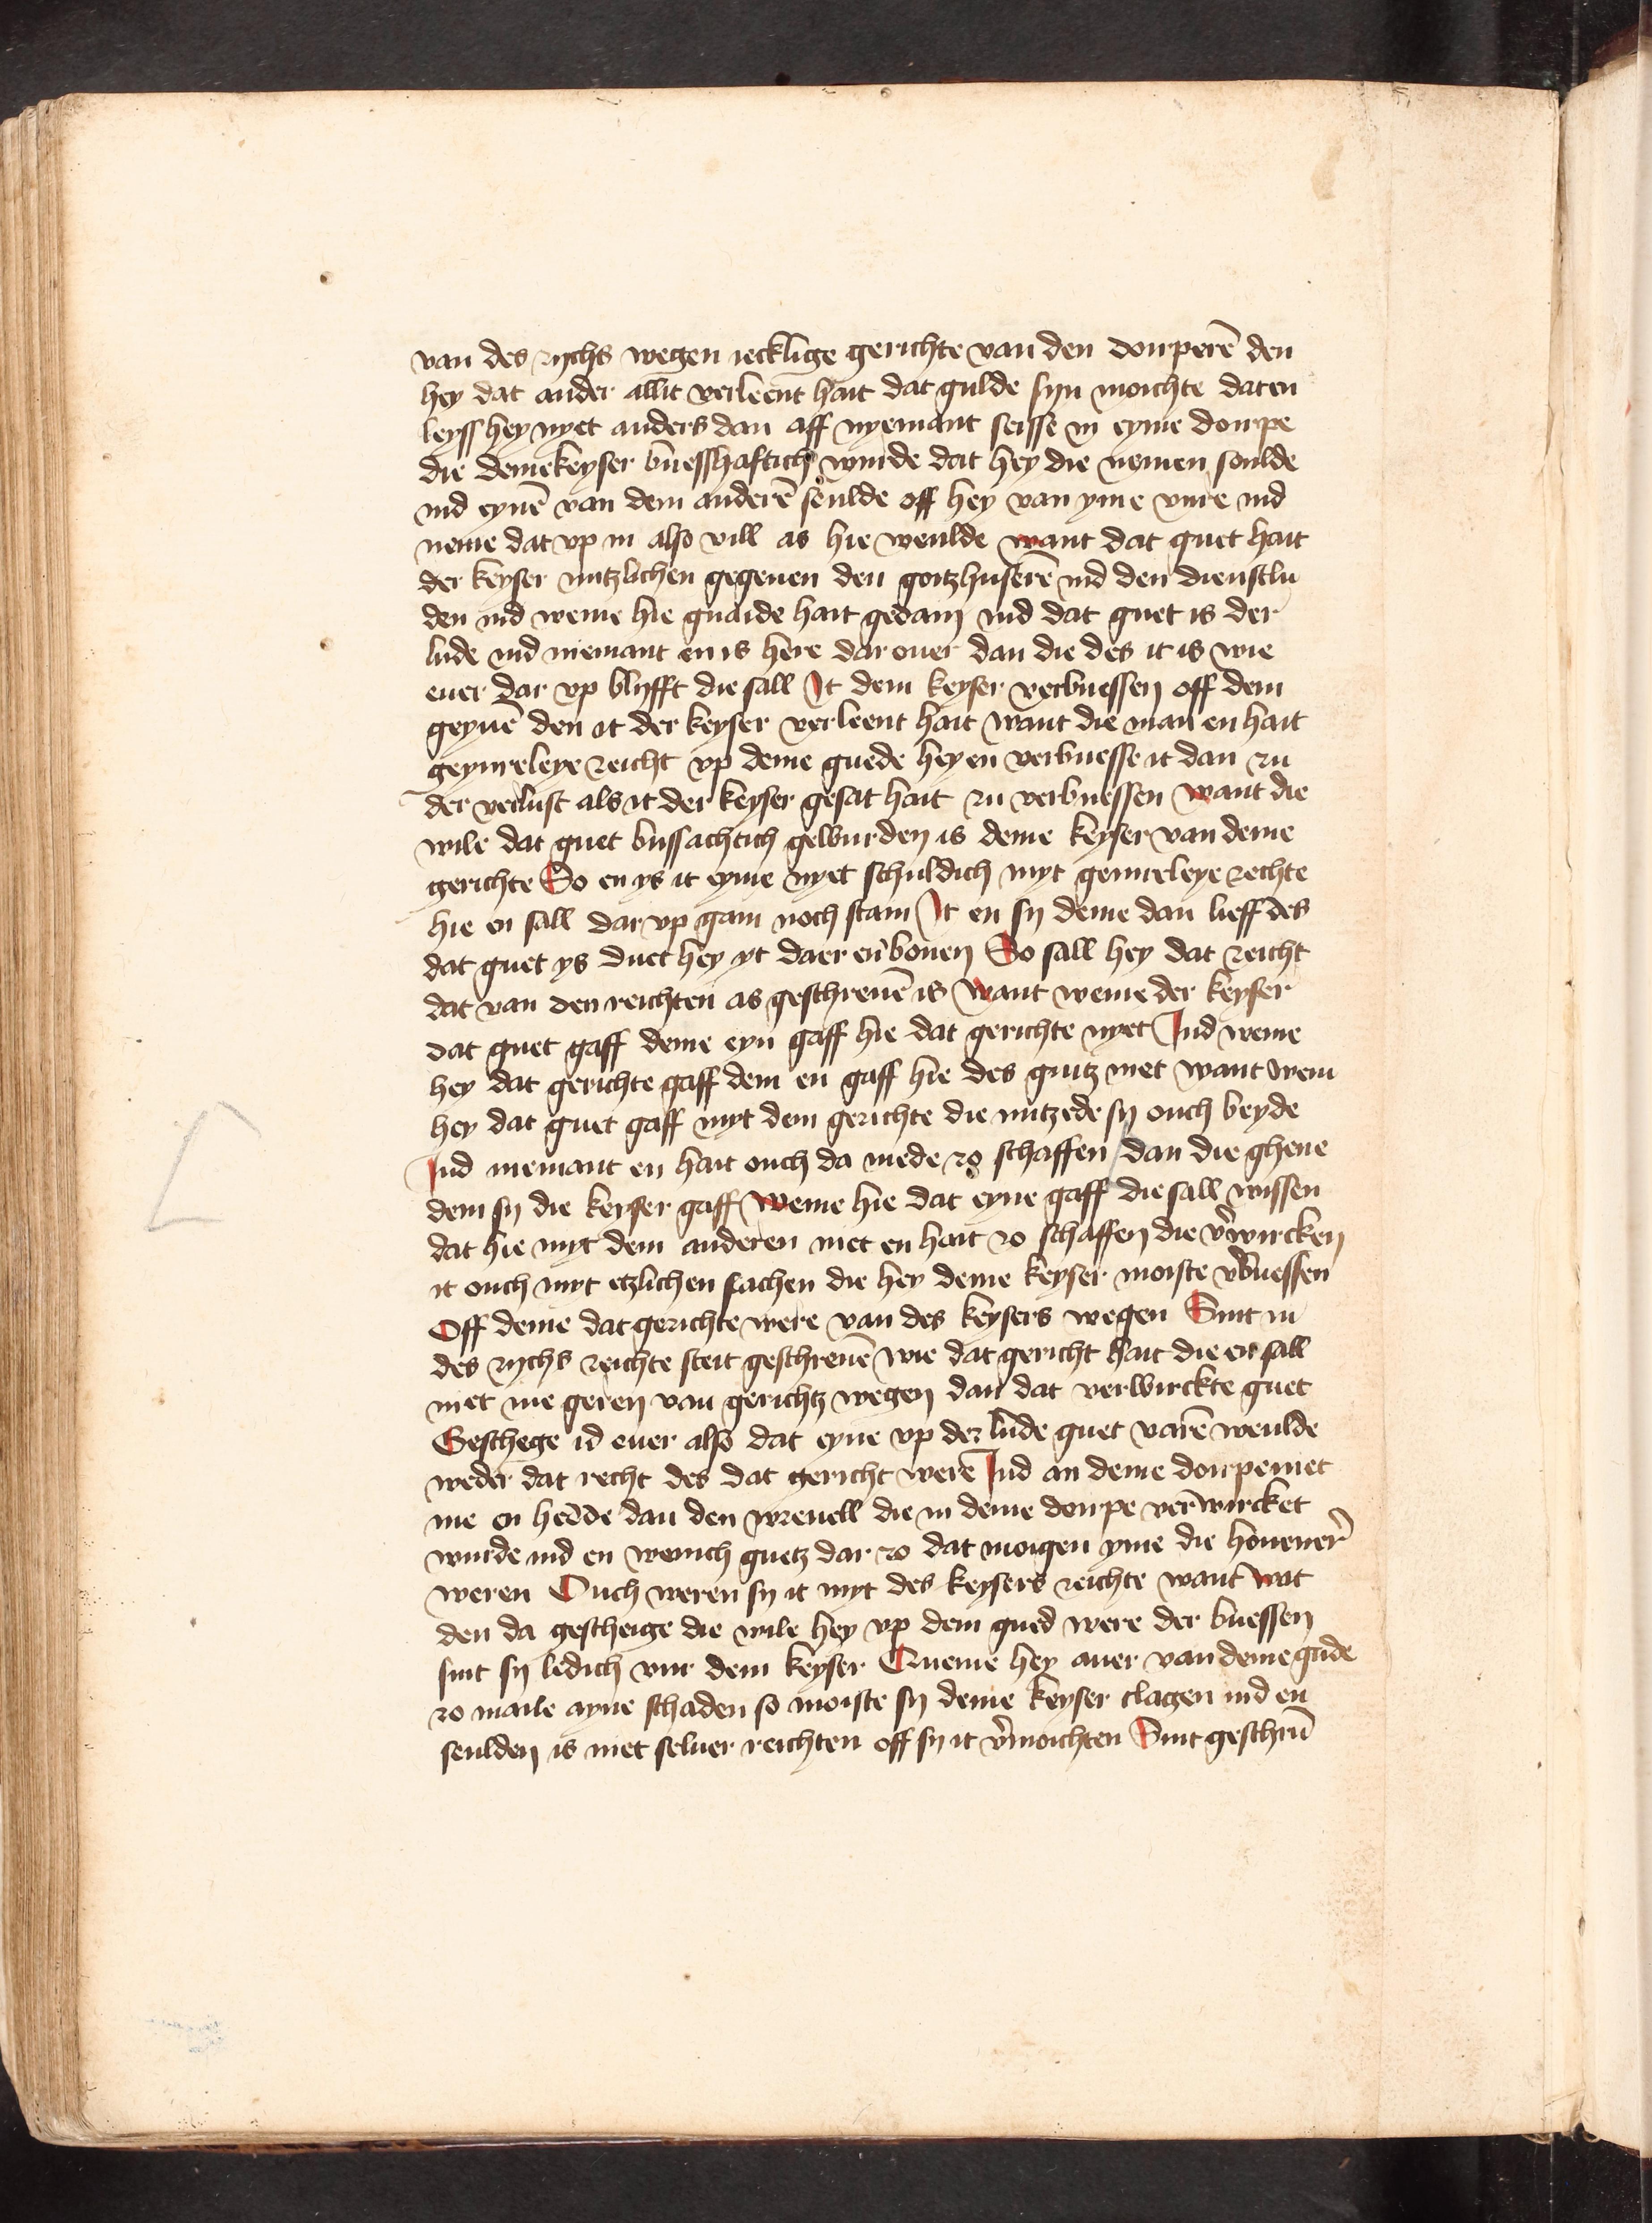 van des rychs wegen iecklige gerichte van den dorperē den
hey dat ander allit verleent hait dat gulde syn moichte daten
leyss hey nyet anders dan aff nyemant seisse in eyme dorpe
die deme keyser buesshaftich wurde dat hey die nemen soulde
ind eynē van dem anderē soulde off hey van yme vure ind
neme dat vp in also vill as hie weulde want dat guet hait
der keyser nutzlichen gegeuen den goitzhuserē ind den dienstlu
den ind weme hie gnaide hait gedain ind dat guet is der
lude ind niemant en is here dar ouer dan die des it is wie
euer dar vp blyfft die sall It dem keyser verbuessen off dem
geynē den it der keyser verleent hait want die man en hait
geynreleye reicht vp deme guede hey en verbuesse it dan zu
der verlust als it der keyser gesat hait zu verbuessen want die
wile dat guet bussachtich gewurden is deme keyser van deme
gerichte So en ys it eyme nyet schuldich myt geinreleye rechte
hie en sall dar vp gain noch stain It en sy deme dan lieff des
dat guet ys duet hey yt daer en bouen So sall hey dat reicht
dat van den reichten as geschreuē is want weme der keyser
dat guet gaff deme eyn gaff hie dat gerichte nyet Ind weme
hey dat gerichte gaff dem en gaff hie des gutz niet want wem
hey dat guet gaff myt dem gerichte die nutzede sy ouch beyde
Ind niemant en hait ouch da mede zo schaffen dan die ghene
dem sy die keyser gaff weme hie dat eyne gaff die sall wissen
dat hie myt dem anderen niet en hait zo schaffen die v̄wircken
it ouch myt etzlichen sachen die hey deme keyser moiste v̄buessen
Off deme dat gerichte were van des keysers wegen Sint in
des rychs reichte steit geschreuē wie dat gericht hait die en sall
niet me geren van gerichtz wegen dan dat verwirckte guet
Geschege id euer also dat eyne vp der lude guet varē weulde
weder dat recht des dat gericht were Ind an deme dorpe niet
me en hedde dan den wreuell die in deme dorpe verwircket
wurde ind en wenich guetz dar zo dat moigen yme die houener̄
weren Ouch weren sy it myt des keysers reichte want wat
den da gescheige die wile hey vp dem gued were der buessen
sint sy ledich vur dem keyser Queme hey auer van deme gude
zo maile ayne schaden so moiste sy deme keyser clagen ind en
seulden is niet seluer reichten off sy it v̄moichten Sint geschrū